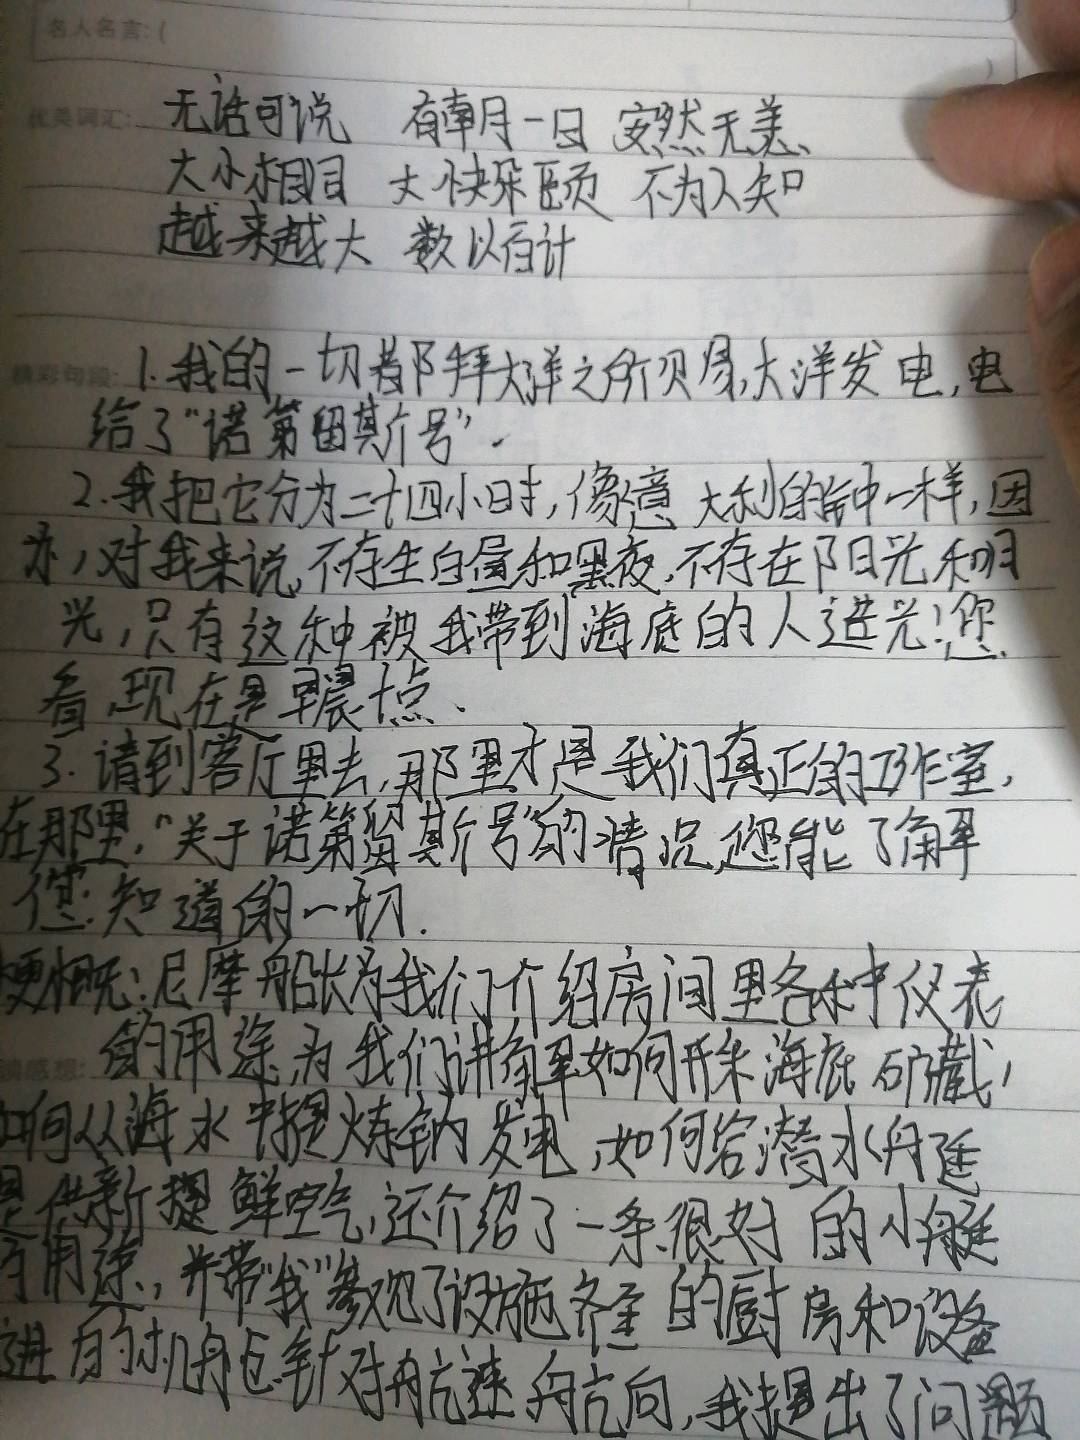 名人名言:(
)
优美词汇: 无话可说 有朝一日 安然无恙
大小相同 大快朵颐 不为人知
越来越大 数以百计
精彩句段: 1.我的一切都拜大洋之所贝易,大洋发电,电
给了“诺第留斯号”.
2.我把它分为二十四小时,像意大利的钟一样,因
为,对我来说,不存在白昼和黑夜,不存在阳光和月
光,只有这种被我带到海底的人造光!您
看,现在是早晨十点.
3.请到客厅里去,那里才是我们真正的工作室,
在那里,“关于诺第留斯号”的情况,您能了解
您知道的一切.
梗概:尼摩船长为我们介绍房间里各种仪表
的用途,为我们讲解如何开采海底矿藏,
读感想:
如何从海水中提炼钠发电,如何给潜水舟廷
是供新提鲜空气,还介绍了一条很好的小艇
用途,并带“我”参观了设施齐全的厨房和设备
进的机舱针对航速航向,我提出了问题